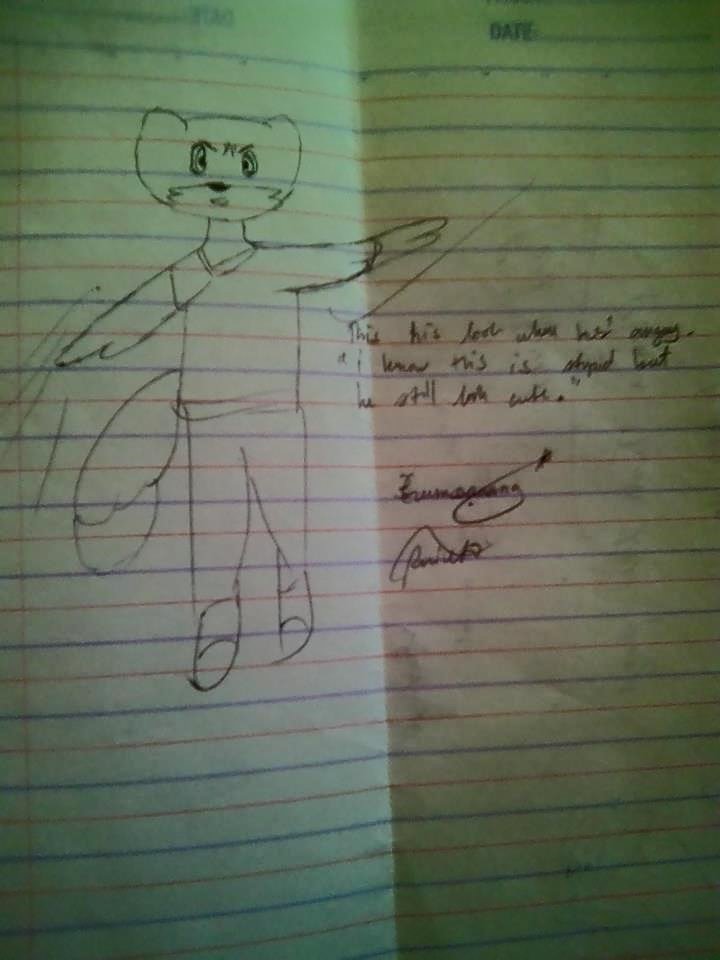 DATE
DATE
This his look when his' angry.
"i know this is stupid but
he still look cute."